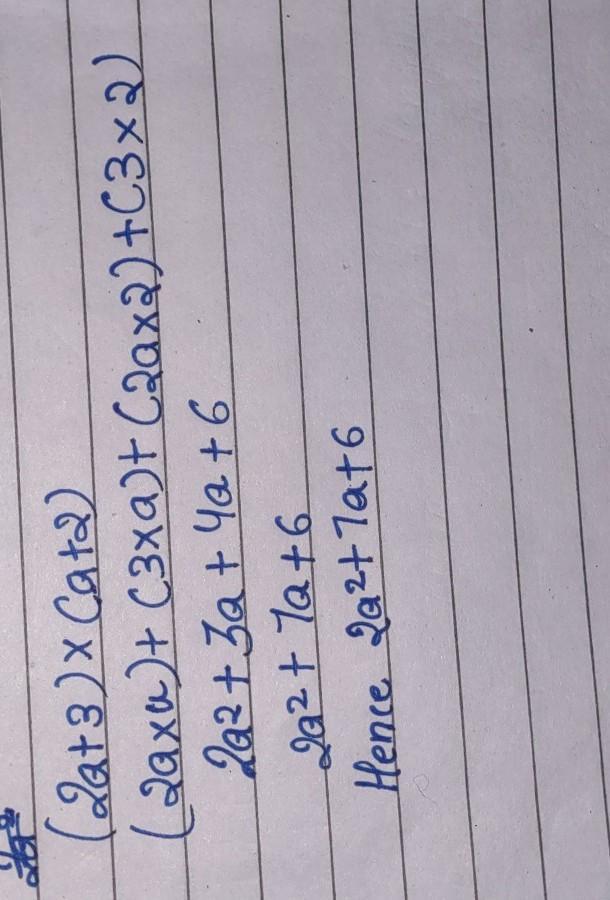 (2a+3)×(a+2)
(2a×a)+(3×a)+(2a×2)+(3×2)
2a²+3a+4a+6
2a²+7a+6
Hence 2a²+7a+6